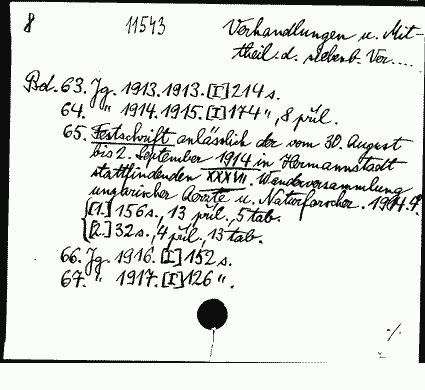 8 11543 Verhandlungen u. Mit-
theil. d. siebenb. Ver....
Bd. 63. Jg. 1913. 1913. [I] 214 s.
64. " 1914. 1915. [I] 174 ", 8 pril.
65. Festschrift anlässlich der vom 30. August
bis 2. September 1914 in Hermannstadt
stattfindenden XXXVII. Wanderversammlung
ungarischer Aerzte u. Naturforscher. 1914.
[1.] 156 s., 13 pril., 5 tab.
[2.] 32 s., 4 pril., 13 tab.
66. Jg. 1916. [I] 152 s.
67. " 1917. [I] 126 ".
./.